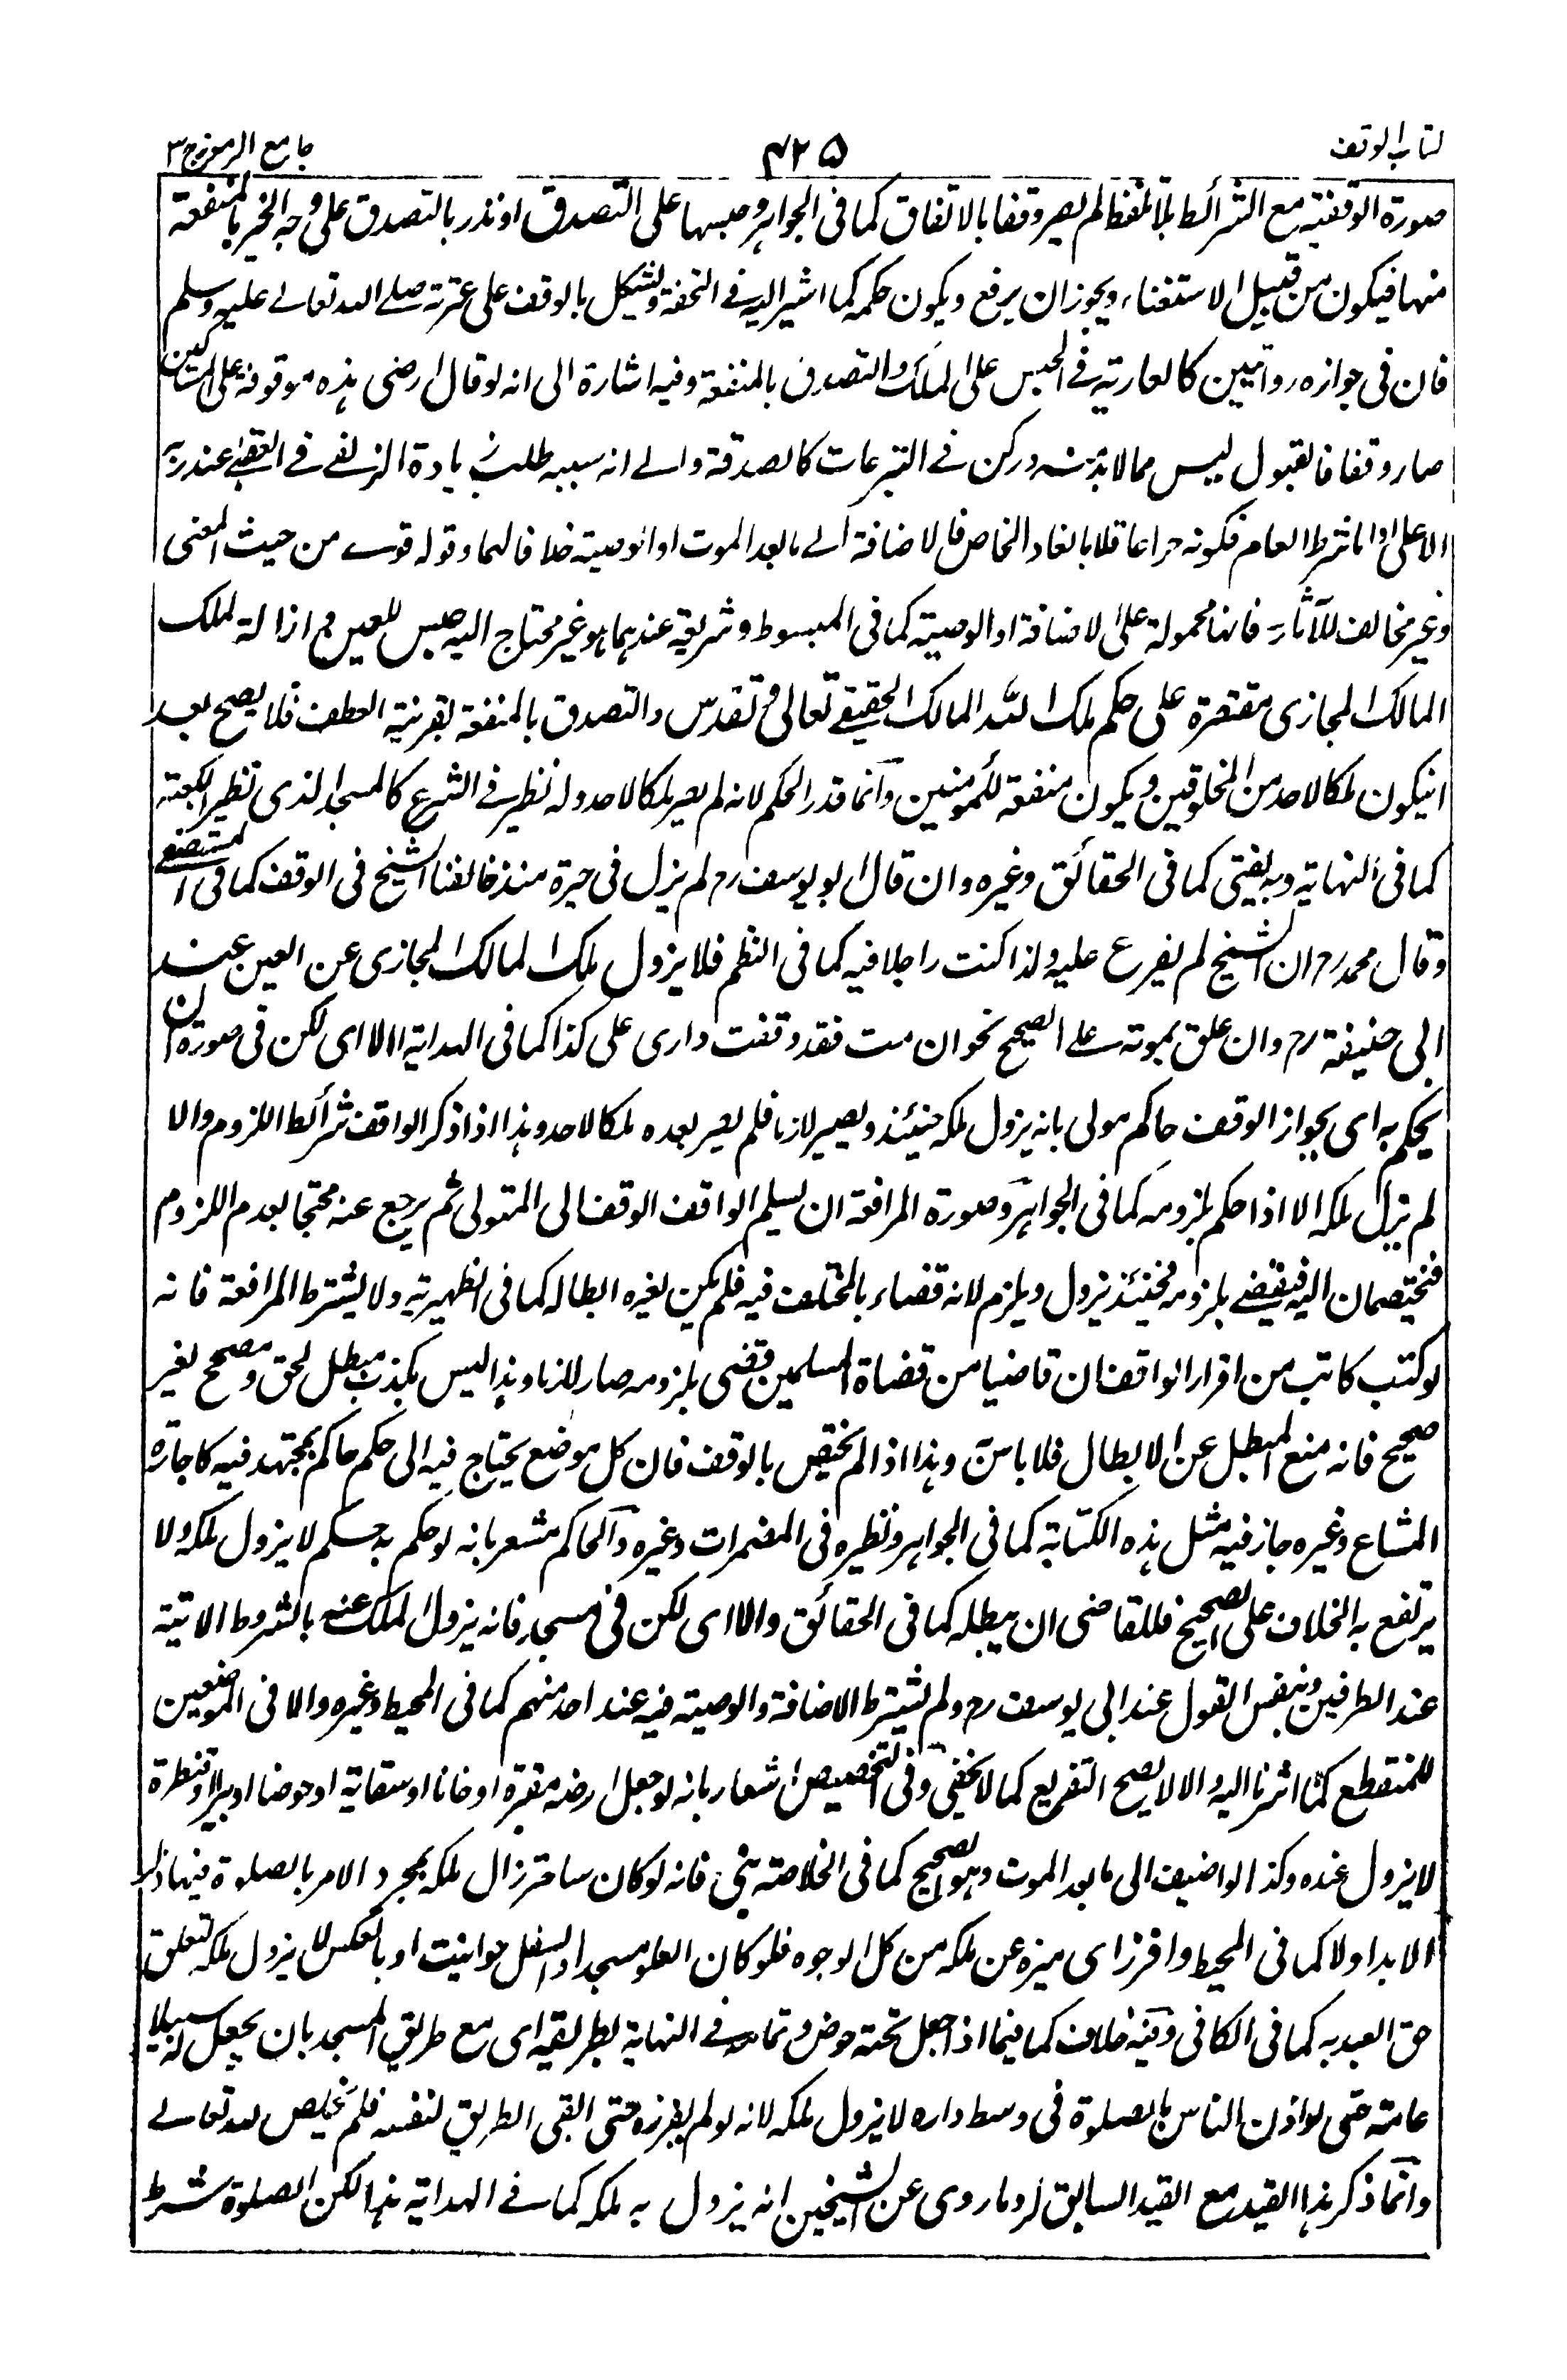 كتاب الوقف
٤٢٥
جامع الرموز ج ٣
صورة الوقفية مع الشرائط بلا تلفظ لم يصر وقفا بالاتفاق كما فى الجواهر وحبسها على التصدق او نذر بالتصدق على وجه الخير بالمنفعة
منها فيكون من قبيل الاستغناء ويجوز ان يرفع ويكون حكمه كما اشير اليه فى التحفة ويشكل بالوقف على عترته صلى الله تعالى عليه وسلم
فان فى جوازه روايتين كالعارية فى الحبس على الملك والتصدق بالمنفعة وفيه اشارة الى انه لو قال ارضى هذه موقوفة على المساكين
صار وقفا فالقبول ليس مما لا بد منه وركن فى التبرعات كالصدقة والى انه سببه طلب زيادة الزلفى فى العقبى عند ربه
الاعلى واما شرط العام فكونه حرا عاقلا بالغا والخاص فالاضافة الى ما بعد الموت او الوصية خلافا لهما وقوله قوى من حيث المعنى
وغير مخالف للآثار فانها محمولة على الاضافة او الوصية كما فى المبسوط وشريعة عندهما هو غير محتاج اليه حبس للعين مع ازالة لملك
المالك المجازى مقتصرة على حكم ملك الله المالك الحقيقى تعالى وتقدس والتصدق بالمنفعة بقرينة العطف فلا يصح بعد
ان يكون ملكا لاحد من المخلوقين ويكون منفعة للمؤمنين وانما قدر الحكم لانه لم يصر ملكا لاحد وله نظير فى الشرع كالمسجد الذى نظير الكعبة
كما فى النهاية وبه يفتى كما فى الحقائق وغيره وان قال ابو يوسف رح لم يزل فى حيرة منذ خالفنا الشيخ فى الوقف كما فى المستصفى
وقال محمد رح ان الشيخ لم يفرع عليه ولذا كنت راجلا فيه كما فى النظم فلا يزول ملك المالك المجازى عن العين عند
ابى حنيفة رح وان علق بموته على الصحيح نحو ان مت فقد وقفت دارى على كذا كما فى الهداية الا اى لكن فى صورة ان
يحكم به اى بجواز الوقف حاكم مولى بانه يزول ملكه حينئذ ويصير لازما فلم يصر بعده ملكا لاحد وهذا اذا ذكر الواقف شرائط اللزوم والا
لم يزل ملكه الا اذا حكم بلزومه كما فى الجواهر وصورة المرافعة ان يسلم الواقف الوقف الى المتولى ثم يرجع عنه محتجا بعدم اللزوم
فيختصمان اليه فيقضى بلزومه فحينئذ يزول ويلزم لانه قضاء بالمختلف فيه فلم يكن لغيره ابطاله كما فى الظهيرية ولا يشترط المرافعة فانه
لو كتب كاتب من اقرار الواقف ان قاضيا من قضاة المسلمين قضى بلزومه صار لازما وهذا ليس بكذب مبطل لحق ومصحح لغير
صحيح فانه منع المبطل عن الابطال فلا باس به وهذا اذا لم يختص بالوقف فان كل موضع يحتاج فيه الى حكم حاكم بمجتهد فيه كاجارة
المشاع وغيره جاز فيه مثل هذه الكتابة كما فى الجواهر ونظيره فى المضمرات وغيره والحاكم مشعر بانه لو حكم به حكم لا يزول ملكه ولا
يرتفع به الخلاف على الصحيح فللقاضى ان يبطله كما فى الحقائق والا اى لكن فى مسجد فانه يزول الملك عنه بالشروط الاتية
عند الطرفين وبنفس القول عند ابى يوسف رح ولم يشترط الاضافة والوصية فيه عند احد منهم كما فى المحيط وغيره والا فى الموضعين
للمنقطع كما اشرنا اليه والا لا يصح التفريع كما لا يخفى وفى التخصيص اشعار بانه لو جعل ارضه مقبرة او خانا او سقاية او حوضا او بيرا او قنطرة
لا يزول عنده وكذا لو اضيف الى ما بعد الموت وهو الصحيح كما فى الخلاصة بنى فانه لو كان ساحة زال ملكه بمجرد الامر بالصلوة فيها ذكر
الابد اولا كما فى المحيط وافرز اى ميزه عن ملكه من كل الوجوه فلو كان العلو مسجدا والسفل حوانيت او بالعكس لا يزول ملكه لتعلق
حق العبد به كما فى الكافى وفيه خلاف كما فيما اذا جعل تحته حوض وتمامه فى النهاية بطريقه اى مع طريق المسجد بان يجعل له سبيلا
عامة حتى لو اذن الناس بالصلوة فى وسط داره لا يزول ملكه لانه لو لم يفرزه حتى ابقى الطريق لنفسه فلم يخلص لله تعالى
وانما ذكر هذا القيد مع القيد السابق لرد ما روى عن الشيخين انه يزول به ملكه كما فى الهداية هذا لكن الصلوة شرط